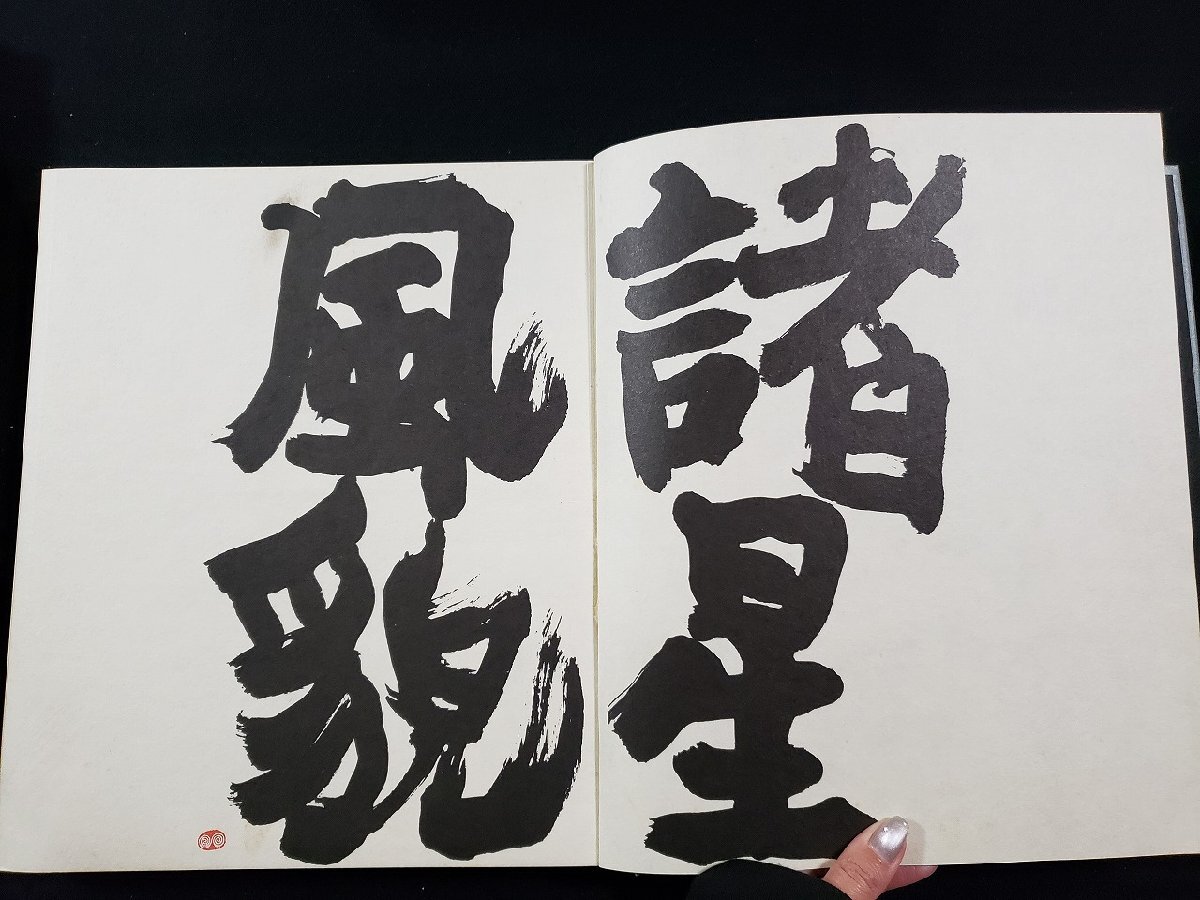 諸星
風貌